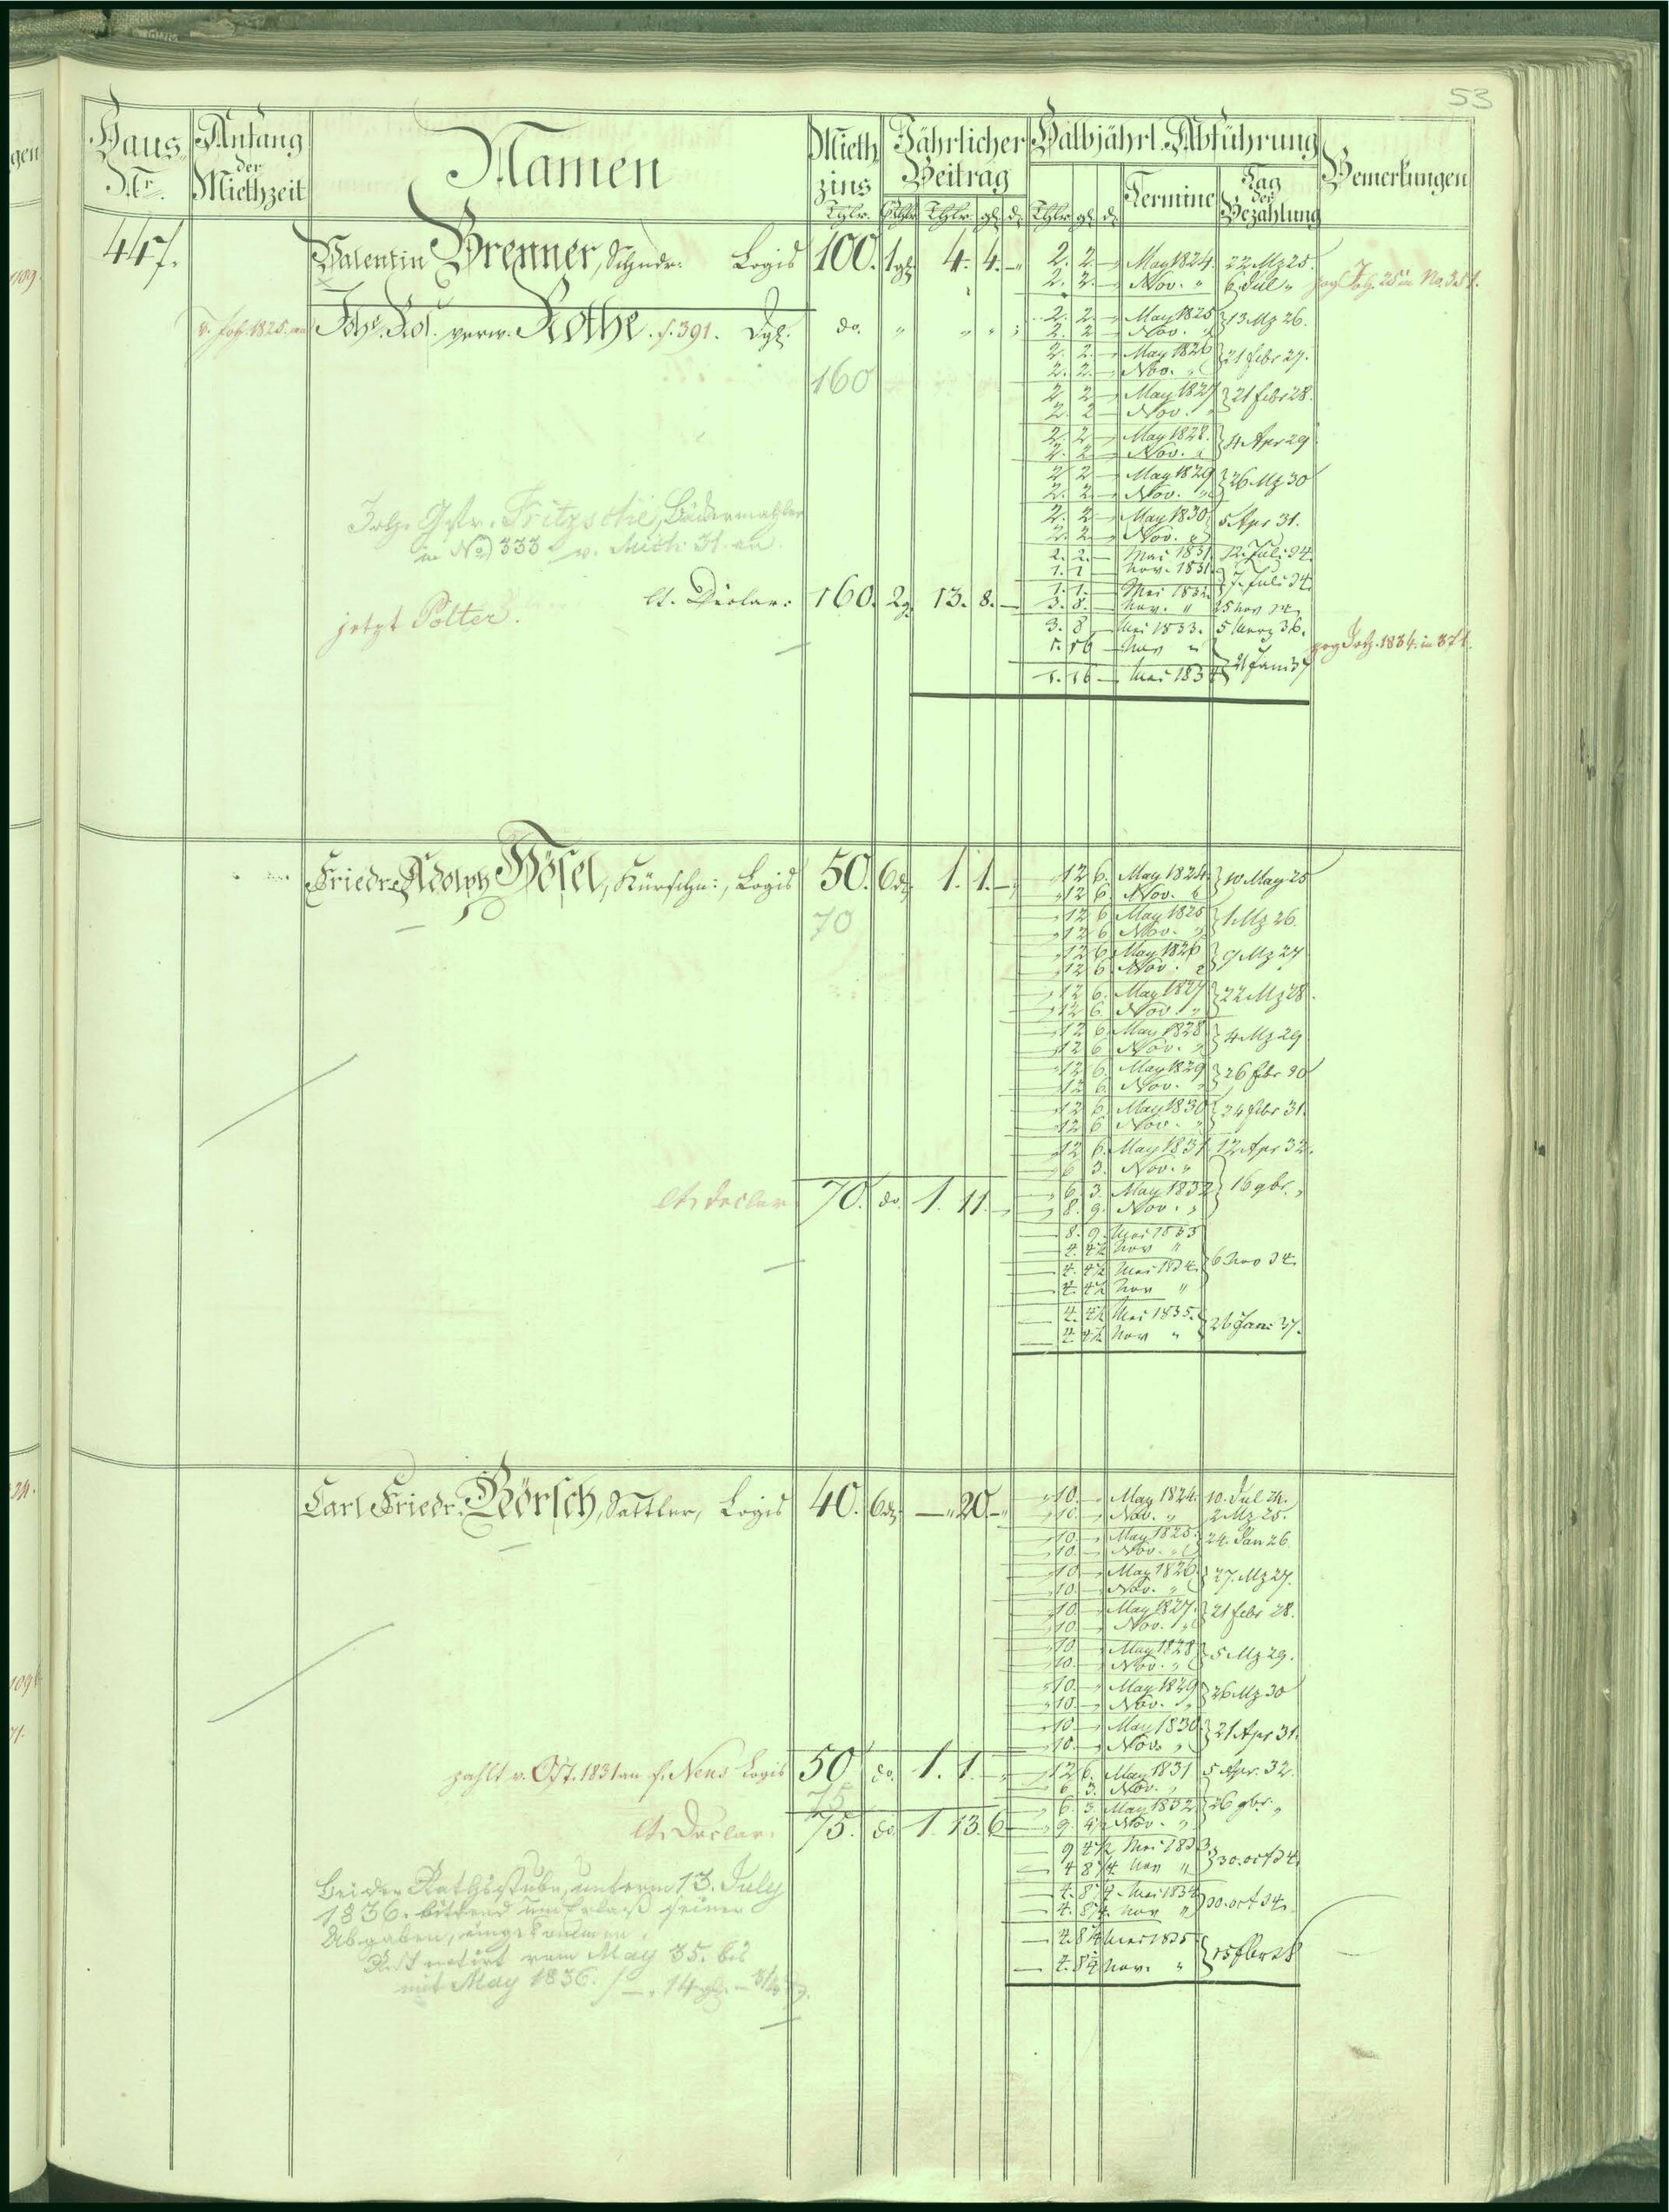 53
Haus Nr. Anfang der Miethzeit Namen Mieth zins Jährlicher Beitrag Halbjährl. Abführung Bemerkungen
Thlr. Thlr. gl. d. Thlr. gl. d. Termine Tag der Bezahlung
447. Valentin Brenner, Schndr. Logis 100. 1 gl. 4. 4. — 2. 2. — May 1824. 22 Mz 25.
2. 2. — Nov. " 6. Jul "
Rothe. f. 391. do. 2. 2. — May 1825 } 13 Mz 26.
2. 2 — Nov. "
160 2. 2. — May 1826 } 21 febr 27.
2. 2. — Nov. "
2. 2 — May 1827 } 21 febr 28.
2. 2 — Nov. "
2. 2 — May 1828. } 4 Apr 29
2. 2 — Nov. "
2. 2 — May 1829 } 26 Mz 30
2. 2. — Nov. "
Fritzsche, 2. 2 — May 1830 } 5 Apr 31.
in No 333 v. Mich. 31. an. 2. 2 — Nov. "
2. 2. — Mai 1831. 12. Juli 34.
1. 1 — Nov. 1831. } 7. Juli 34.
lt. Declar: 160. 2 13. 8. — 1. 1. — Mai 1832.
3. 8. — Nov. " 25 Nov 34
jetzt Polter. 3. 8 — Mai 1833. 5 Merz 36.
1. 16 — Nov "
1. 16 — Mai 1834 } 21 Jan 37
Friedr. Adolph Hösel, Kürschn:, Logis 50. 6 d. 1. 1. — 12 6. May 1824. } 10 May 25
12 6. Nov. "
70 12 6 May 1825 } 1. Mz 26.
12 6 Nov. "
12 6. May 1826 } 9 Mz 27
12 6 Nov. "
12 6. May 1827 } 22 Mz 28.
12 6. Nov. "
12 6 May 1828 } 4 Mz 29
12 6 Nov. "
12 6. May 1829 } 26 febr 30
12 6. Nov. "
12 6. May 1830 } 24 febr 31.
12 6 Nov. "
12 6. May 1831. 12 Apr 32.
6 3. Nov. "
lt. Declar 70. do. 1. 11. — 6. 3. May 1832 } 16 9br. "
8. 9. Nov. "
8. 9. Mai 1833
4. 4½ Nov "
4. 4½ Mai 1834. } 6 Nov 34.
4. 4½ Nov "
4. 4½ Mai 1835. } 26 Jan: 37.
4. 4½ Nov "
Carl Friedr. Börsch, Sattler, Logis 40. 6 d. — 20. — 10. — May 1824. 10. Jul 24.
10. — Nov. " 2 Mz 25.
10. — May 1825. } 24. Jan 26.
10. — Nov. "
10. — May 1826. } 27. Mz 27.
10. — Nov. "
10. — May 1827. } 21 febr 28.
10. — Nov. "
10. — May 1828 } 5 Mz 29.
10. — Nov. "
10. — May 1829 } 26 Mz 30
10. — Nov. "
10. — May 1830. } 21 Apr 31.
10. — Nov. "
zahlt v. Ost. 1831 an f. Neus Logis 50 do. 1. 1. — 12 6. May 1831 5 Apr. 32.
6 3. Nov. "
75 6. 3. May 1832 } 26 9br. "
lt. Declar. 75. do. 1. 13. 6 9. 4½ Nov. "
9 4½ Mai 1833 } 30. oct 34.
4 8¼ Nov "
Bei der Rathsstube, unterm 13. July 4. 8¼ Mai 1834 } 30. oct 34.
1836. bittend um Erlaß seiner 4. 8¼ Nov "
Abgaben, eingekommen. 4. 8¼ Mai 1835
Rest notirt vom May 35. bis 4. 8¼ Nov. "
mit May 1836.